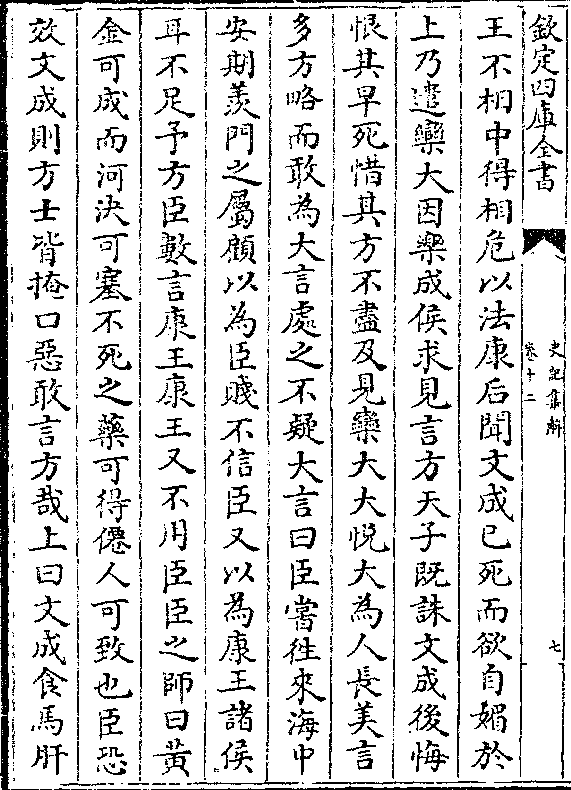 欽定四庫全書
史記集解
卷十二
七
王不相中得相危以法康后聞文成已死而欲自媚於
上乃遣欒大因樂成侯求見言方天子既誅文成後悔
恨其早死惜其方不盡及見欒大大悅大為人長美言
多方略而敢為大言處之不疑大言曰臣嘗往來海中
安期羨門之屬顧以為臣賤不信臣又以為康王諸侯
耳不足予方臣數言康王康王又不用臣臣之師曰黃
金可成而河決可塞不死之藥可得僊人可致也臣恐
效文成則方士皆掩口惡敢言方哉上曰文成食馬肝